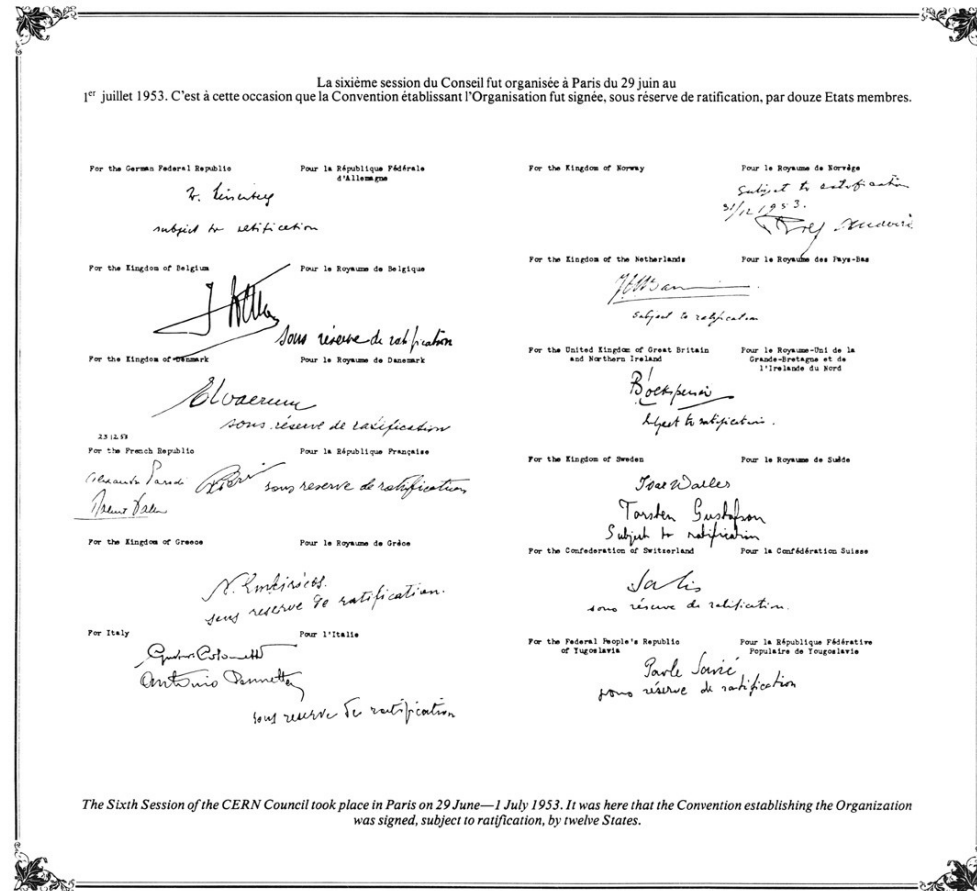 La sixième session du Conseil fut organisée à Paris du 29 juin au
1er juillet 1953. C'est à cette occasion que la Convention établissant l'Organisation fut signée, sous réserve de ratification, par douze Etats membres.
For the German Federal Republic
Pour la République Fédérale
d'Allemagne
subject to ratification
For the Kingdom of Belgium
Pour le Royaume de Belgique
sous réserve de ratification
For the Kingdom of Denmark
Pour le Royaume de Danemark
sous réserve de ratification
23 12 53
For the French Republic
Pour la République Française
Alexandre Parodi
sous réserve de ratification
For the Kingdom of Greece
Pour le Royaume de Grèce
sous reserve de ratification.
For Italy
Pour l'Italie
Gustavo Colonnetti
Antonio Pennetta
sous reserve de ratification
For the Kingdom of Norway
Pour le Royaume de Norvège
Subject to ratification
31/12 1953.
For the Kingdom of the Netherlands
Pour le Royaume des Pays-Bas
subject to ratification
For the United Kingdom of Great Britain
and Northern Ireland
Pour le Royaume-Uni de la
Grande-Bretagne et de
l'Irelande du Nord
subject to ratification.
For the Kingdom of Sweden
Pour le Royaume de Suède
Ivar Waller
Torsten Gustafson
Subject to ratification
For the Confederation of Switzerland
Pour la Confédération Suisse
Salis
sous réserve de ratification.
For the Federal People's Republic
of Yugoslavia
Pour la République Fédérative
Populaire de Yougoslavie
Pavle Savić
sous réserve de ratification
The Sixth Session of the CERN Council took place in Paris on 29 June—1 July 1953. It was here that the Convention establishing the Organization
was signed, subject to ratification, by twelve States.